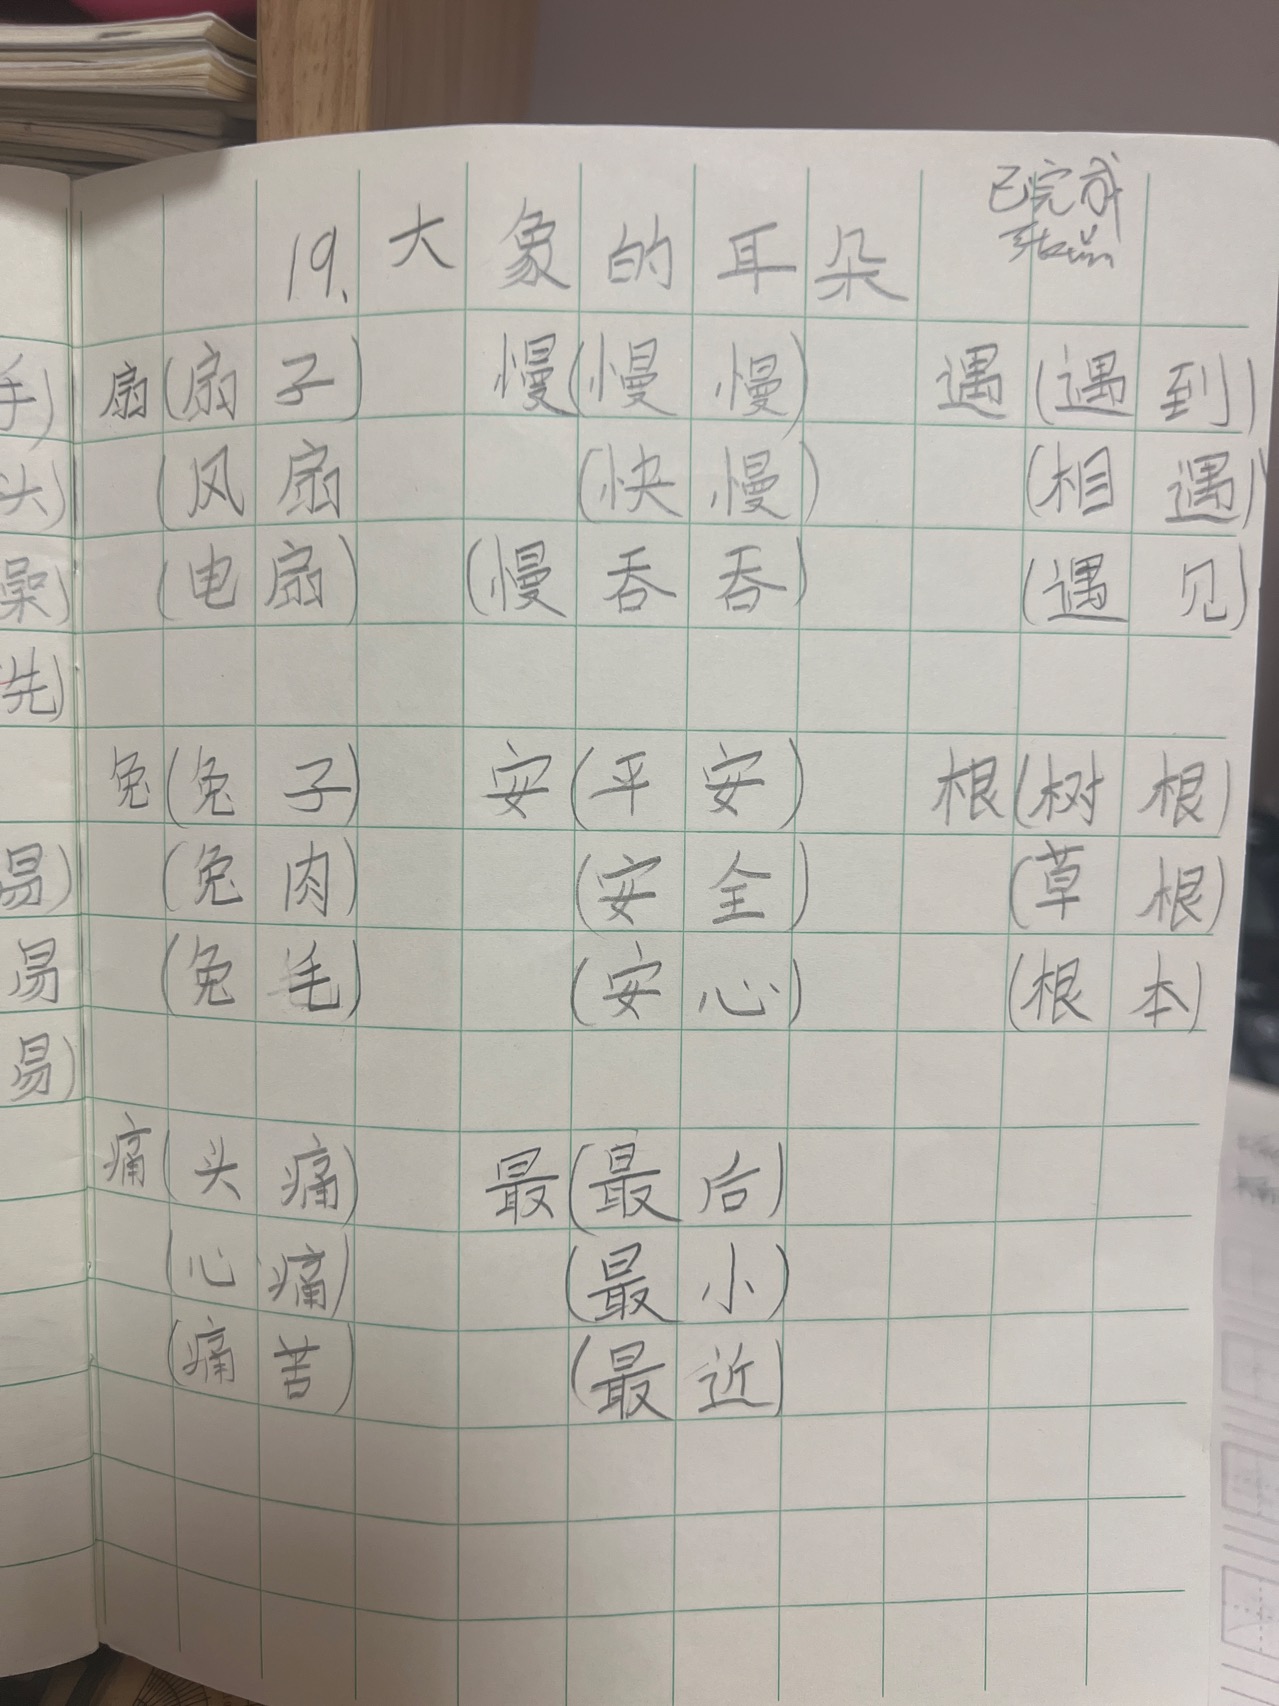 已完成
19. 大象的耳朵
手) 扇(扇子) 慢(慢慢) 遇(遇到)
头) (风扇 (快慢) (相遇)
澡) (电扇) (慢吞吞) (遇见)
先)
兔(兔子) 安(平安) 根(树根)
易) (兔肉) (安全) (草根)
易 (兔毛) (安心) (根本)
易)
痛(头痛) 最(最后)
(心痛) (最小)
(痛苦) (最近)